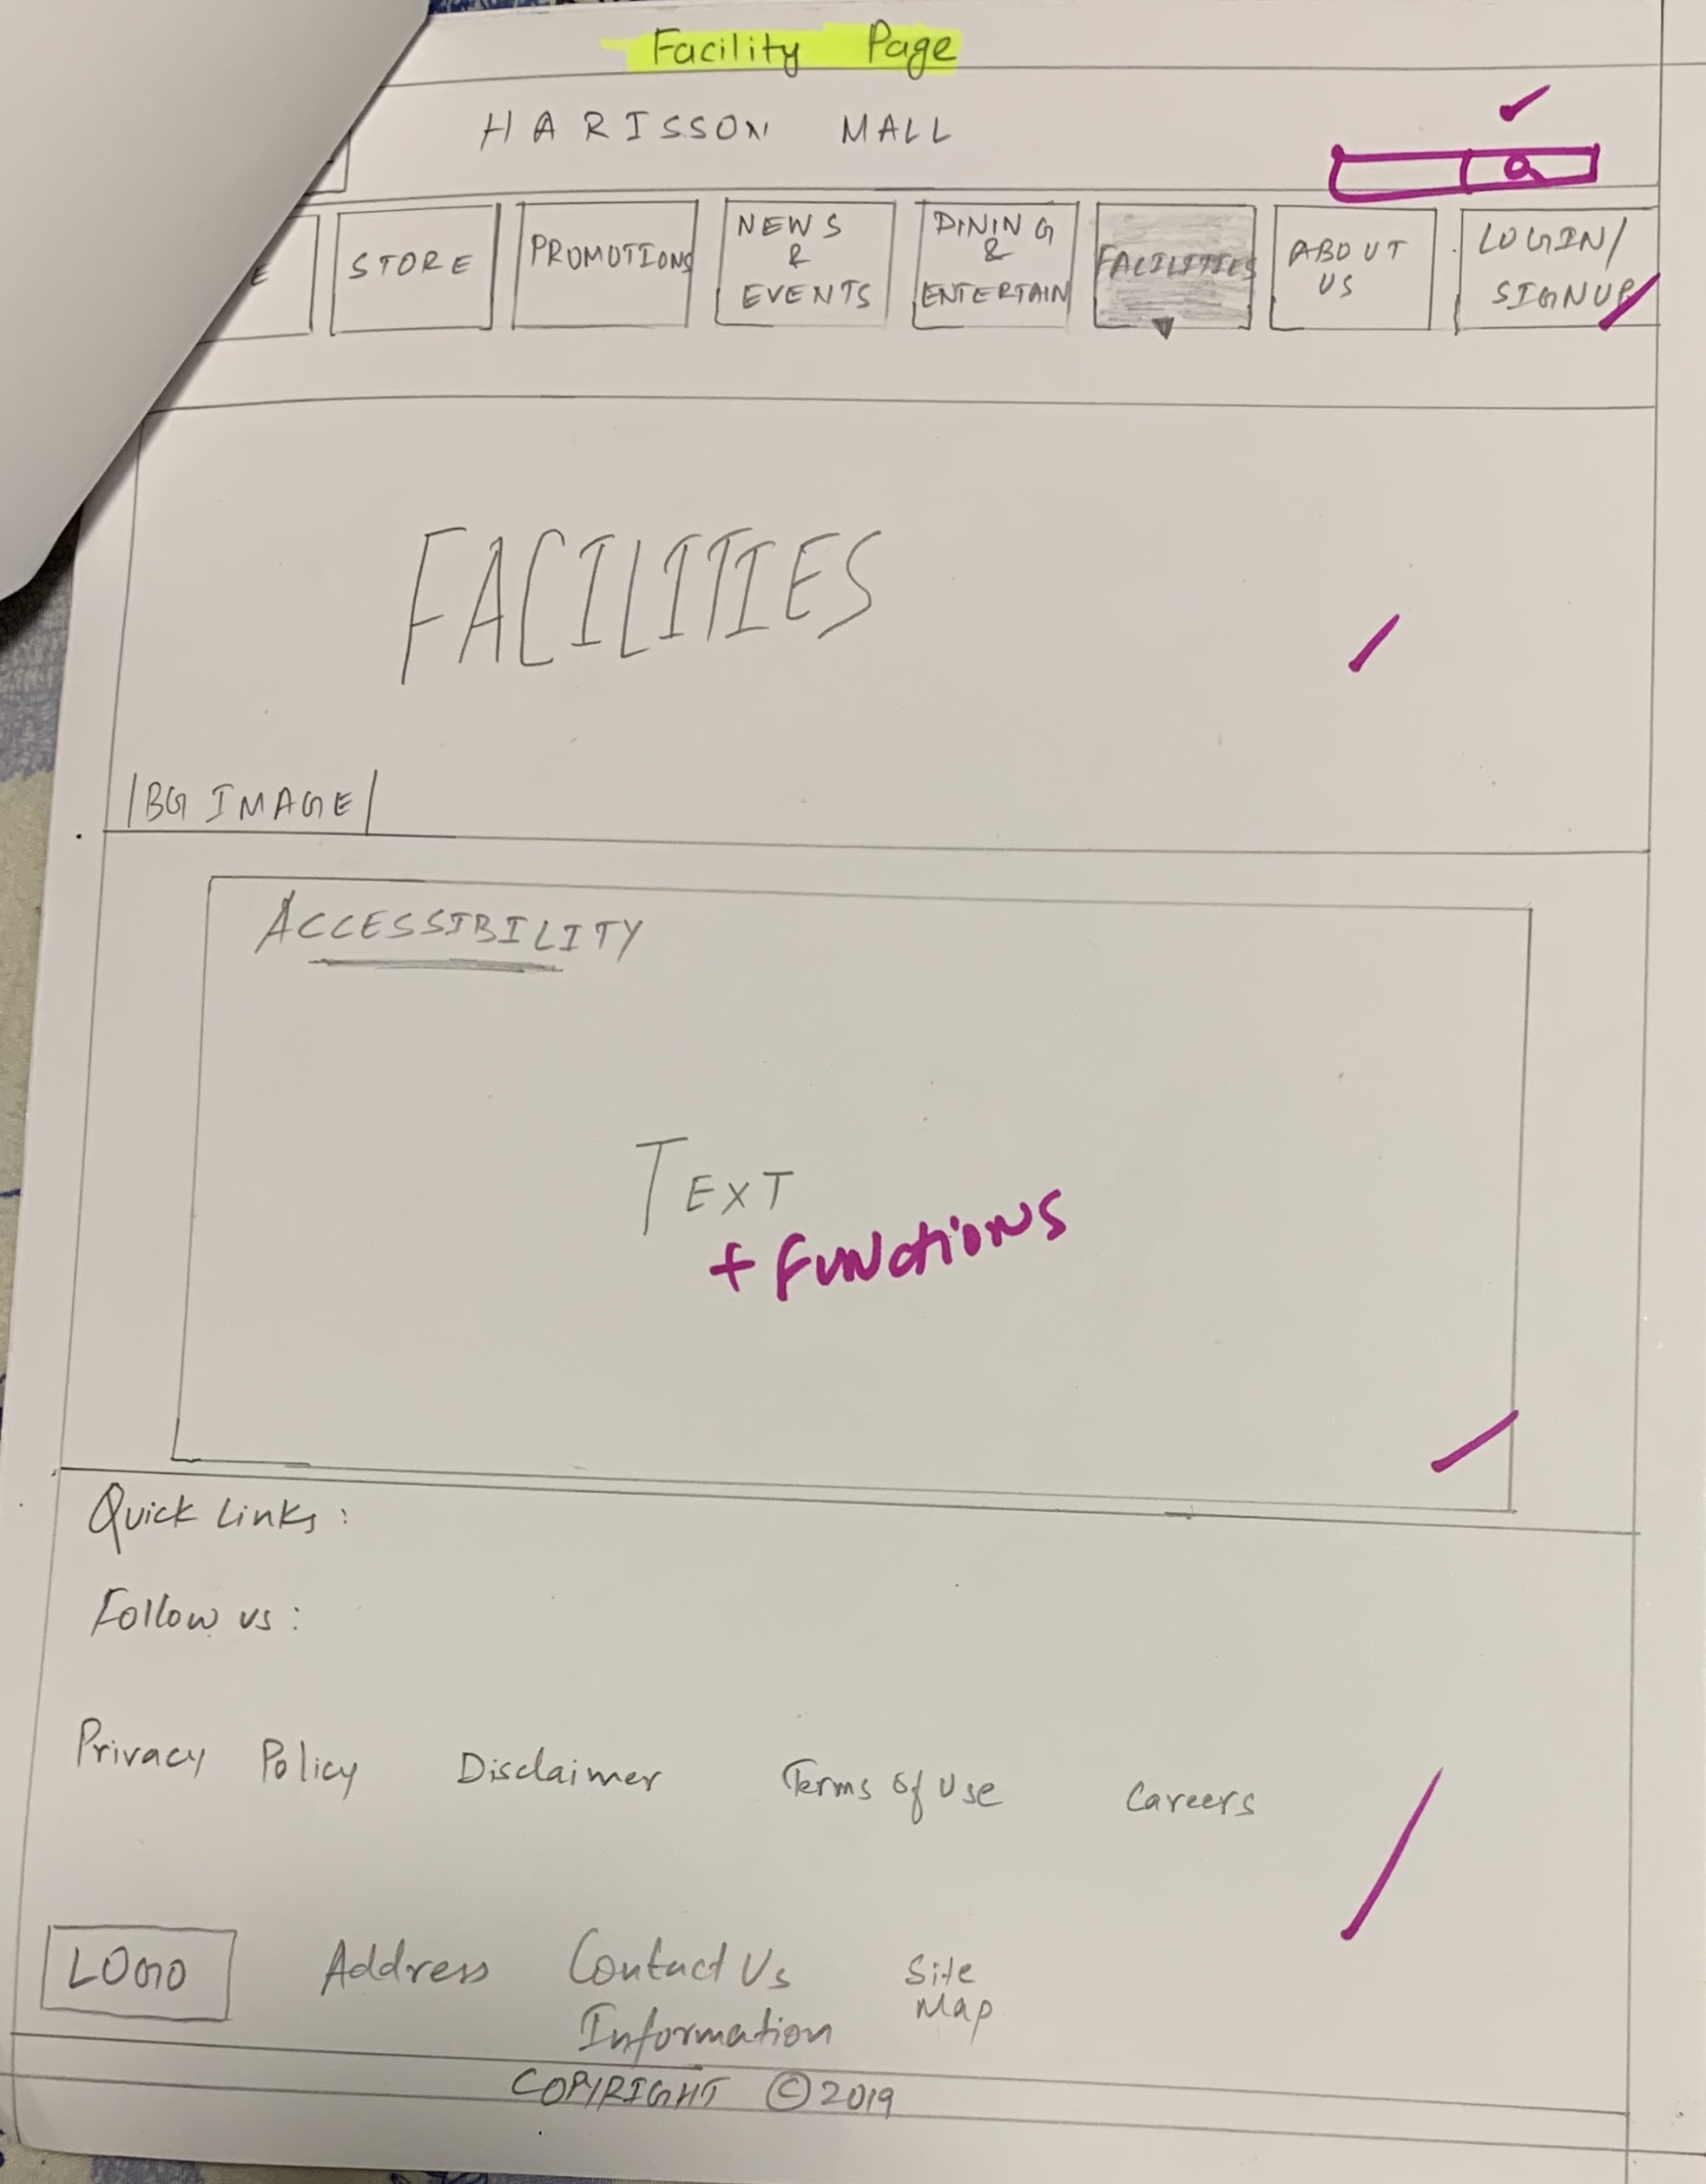 Facility Page
HARISSON MALL
E
STORE
PROMOTIONS
NEWS
&
EVENTS
DINING
&
ENTERTAIN
FACILITIES
ABOUT
US
LOGIN/
SIGNUP
FACILITIES
|BG IMAGE|
ACCESSIBILITY
TEXT
+ Functions
Quick Links :
Follow us :
Privacy Policy Disclaimer Terms of Use Careers
LOGO
Address
Contact Us
Information
Site
Map
COPYRIGHT © 2019